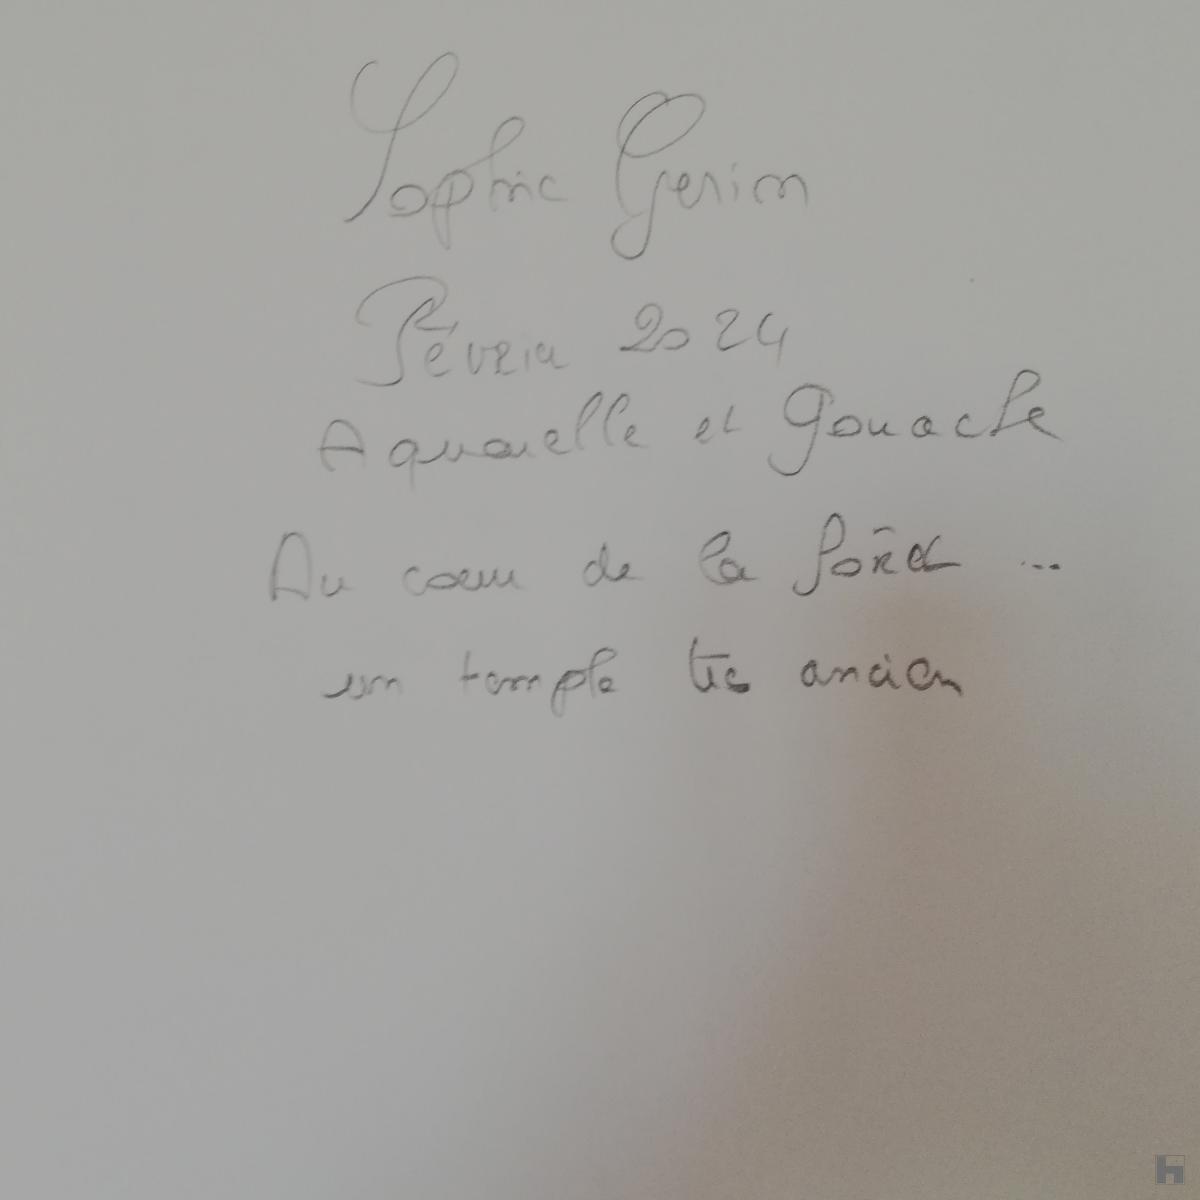 Sophie Gerim
Février 2024
Aquarelle et gouache
Au cœur de la forêt ...
un temple très ancien